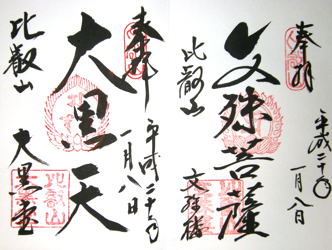 奉拝
平成二十年
一月八日
文殊菩薩
比叡山
文殊楼
奉拝
平成二十年
一月八日
大黒天
比叡山
大黒堂
比叡山